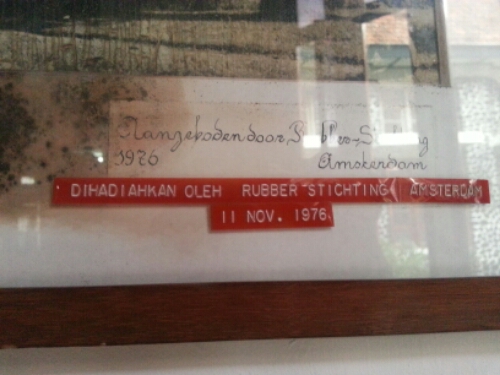 Aangeboden door Rubber-Stichting
1976 Amsterdam
DIHADIAHKAN OLEH RUBBER-STICHTING AMSTERDAM
11 NOV. 1976.